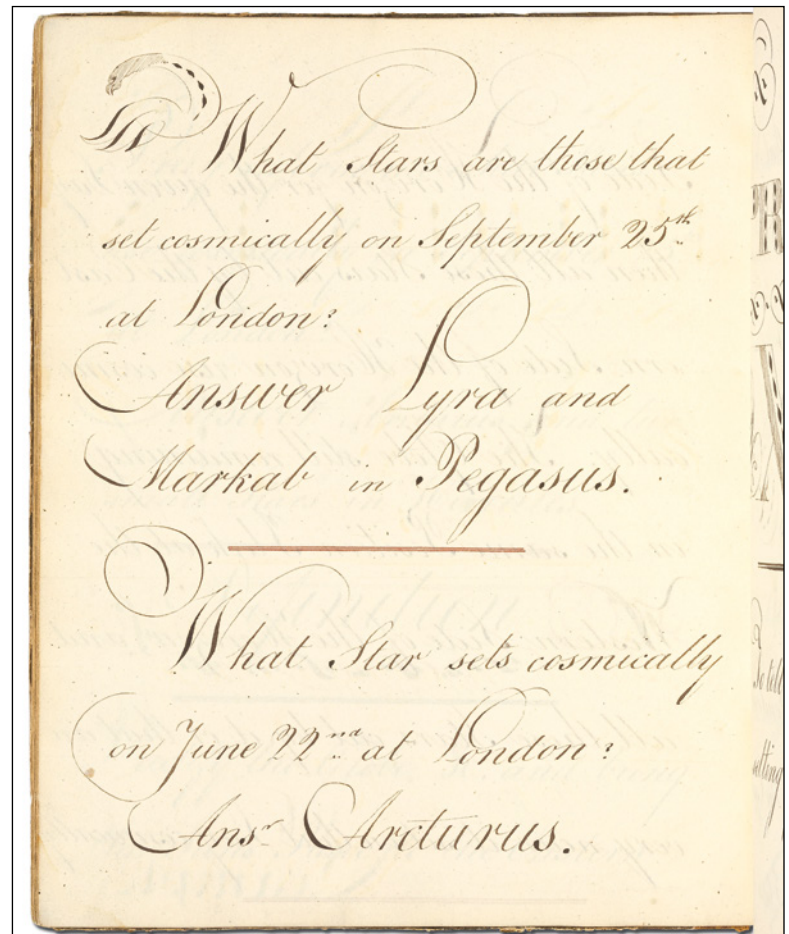 What Stars are those that
set cosmically on September 25th
at London?
Answer Lyra and
Markab in Pegasus.
What Star sets cosmically
on June 22nd at London?
Ansr Arcturus.